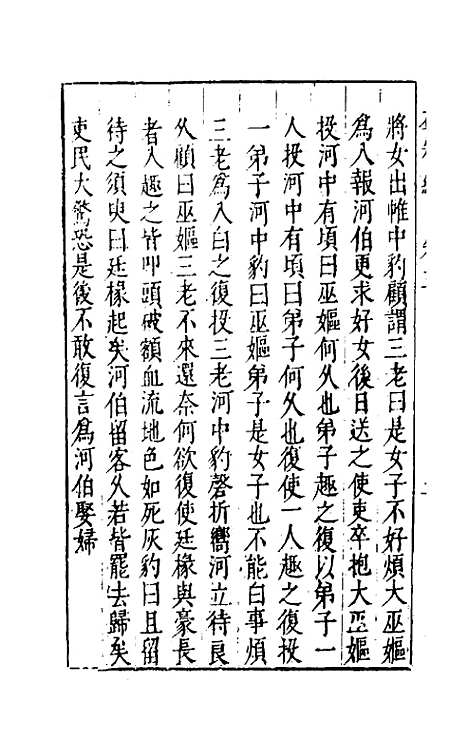 將女出帷中豹顧謂三老曰是女子不好煩大巫嫗
爲入報河伯更求好女後日送之使吏卒抱大巫嫗
投河中有頃曰巫嫗何久也弟子趣之復以弟子一
人投河中有頃曰弟子何久也復使一人趣之復投
一弟子河中豹曰巫嫗弟子是女子也不能白事煩
三老爲入白之復投三老河中豹磬折嚮河立待良
久顧曰巫嫗三老不來還奈何欲復使廷椽與豪長
者入趣之皆叩頭破額血流地色如死灰豹曰且留
待之須臾曰廷椽起矣河伯留客久若皆罷去歸矣
吏民大驚恐是後不敢復言爲河伯娶婦